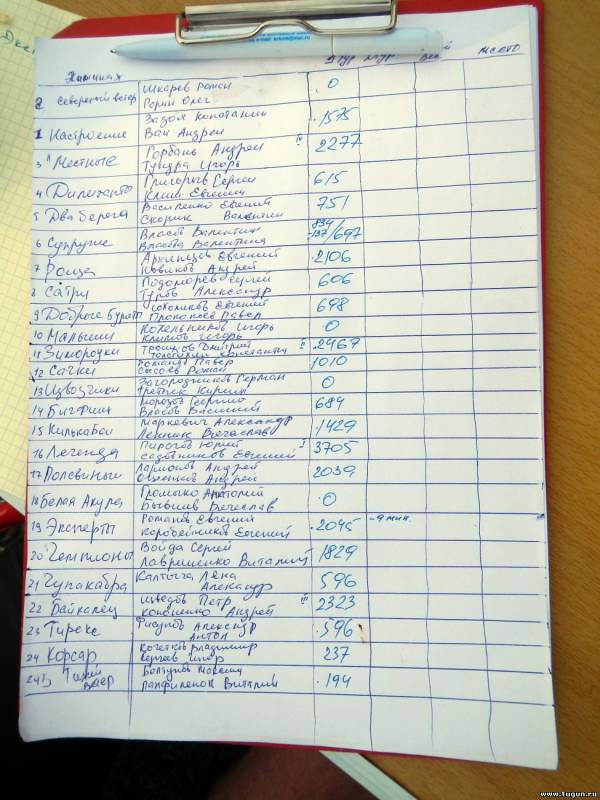 I тур II тур
место
Шкарев Роман
2 Северный ветер 0
Горин Олег
1 Настроение 1575
Ван Андрей
3 "Местные Горбань Андрей IV 2277
Тундра Игорь
4 Дилетанты Григорьев Сергей 615
Клим Евгений
5 Два берега Василенко Евгений 751
Скорик Валентин
6 Супруги Власов Валентин 834 -137/697
Власова Валентина
7 Роща Архипцев Евгений 2106
Новиков Андрей
8 606
Гуров Александр
9 Евгений 698
Прокопьев Павел
10 Малыши Котельников Игорь 0
Климов Игорь
11 Зимородки Троицков Дмитрий II 2467
12 Сачки Романов Павел 1010
Сысоев Роман
13 Извозчики Загородников Герман 0
Третьяк Кирилл
14 БигФиш Морозов Георгий 684
Власов Василий
15 КилькаБой Маркевич Александр 1429
Вячеслав
16 Легенда Пирогов Юрий I 3705
Садовников Евгений
17 Ларионов Андрей 2039
Андрей
18 Белая Акула Громыко Анатолий 0
Бывшев Вячеслав
19 Эксперты Романов Евгений 2045 -9 мин.
Коробейников Евгений
20 Чемпионы Войда Сергей 1829
Лавриненко Виталий
21 Чупакабра Калтыга Лена 596
Александр
22 Байкалец Шведов Петр III 2323
Кононенко Андрей
23 Тирекс Фисунов Александр 596
Антон
24 Корсар Кочетков Владимир 237
Игорь
Тихий Ветер Болтунов Максим 194
Панфиленок Виталий
www.tugun.ru